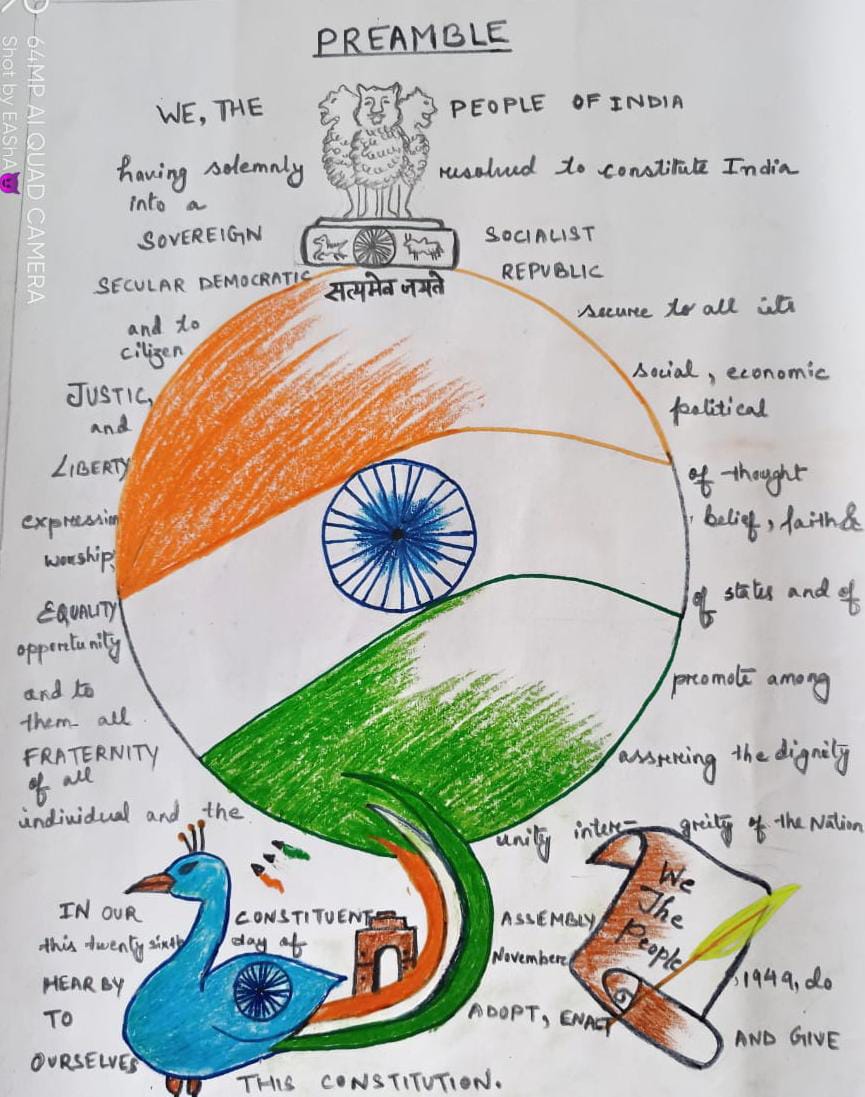 PREAMBLE
WE, THE PEOPLE OF INDIA
having solemnly resolved to constitute India
into a
SOVEREIGN SOCIALIST
SECULAR DEMOCRATIC REPUBLIC
सत्यमेव जयते
and to secure to all its
citizen
JUSTIC, social, economic
and political
LIBERTY of thought
expression belief, faith &
worship;
EQUALITY of states and of
opportunity
and to promote among
them all
FRATERNITY assuring the dignity
of all
individual and the unity inter- grity of the Nation
We
The
People
IN OUR CONSTITUENT ASSEMBLY
this twenty sixth day of November 1949, do
HEAR BY ADOPT, ENACT AND GIVE
TO
OURSELVES
THIS CONSTITUTION.
64MP AI QUAD CAMERA
Shot by EASnA